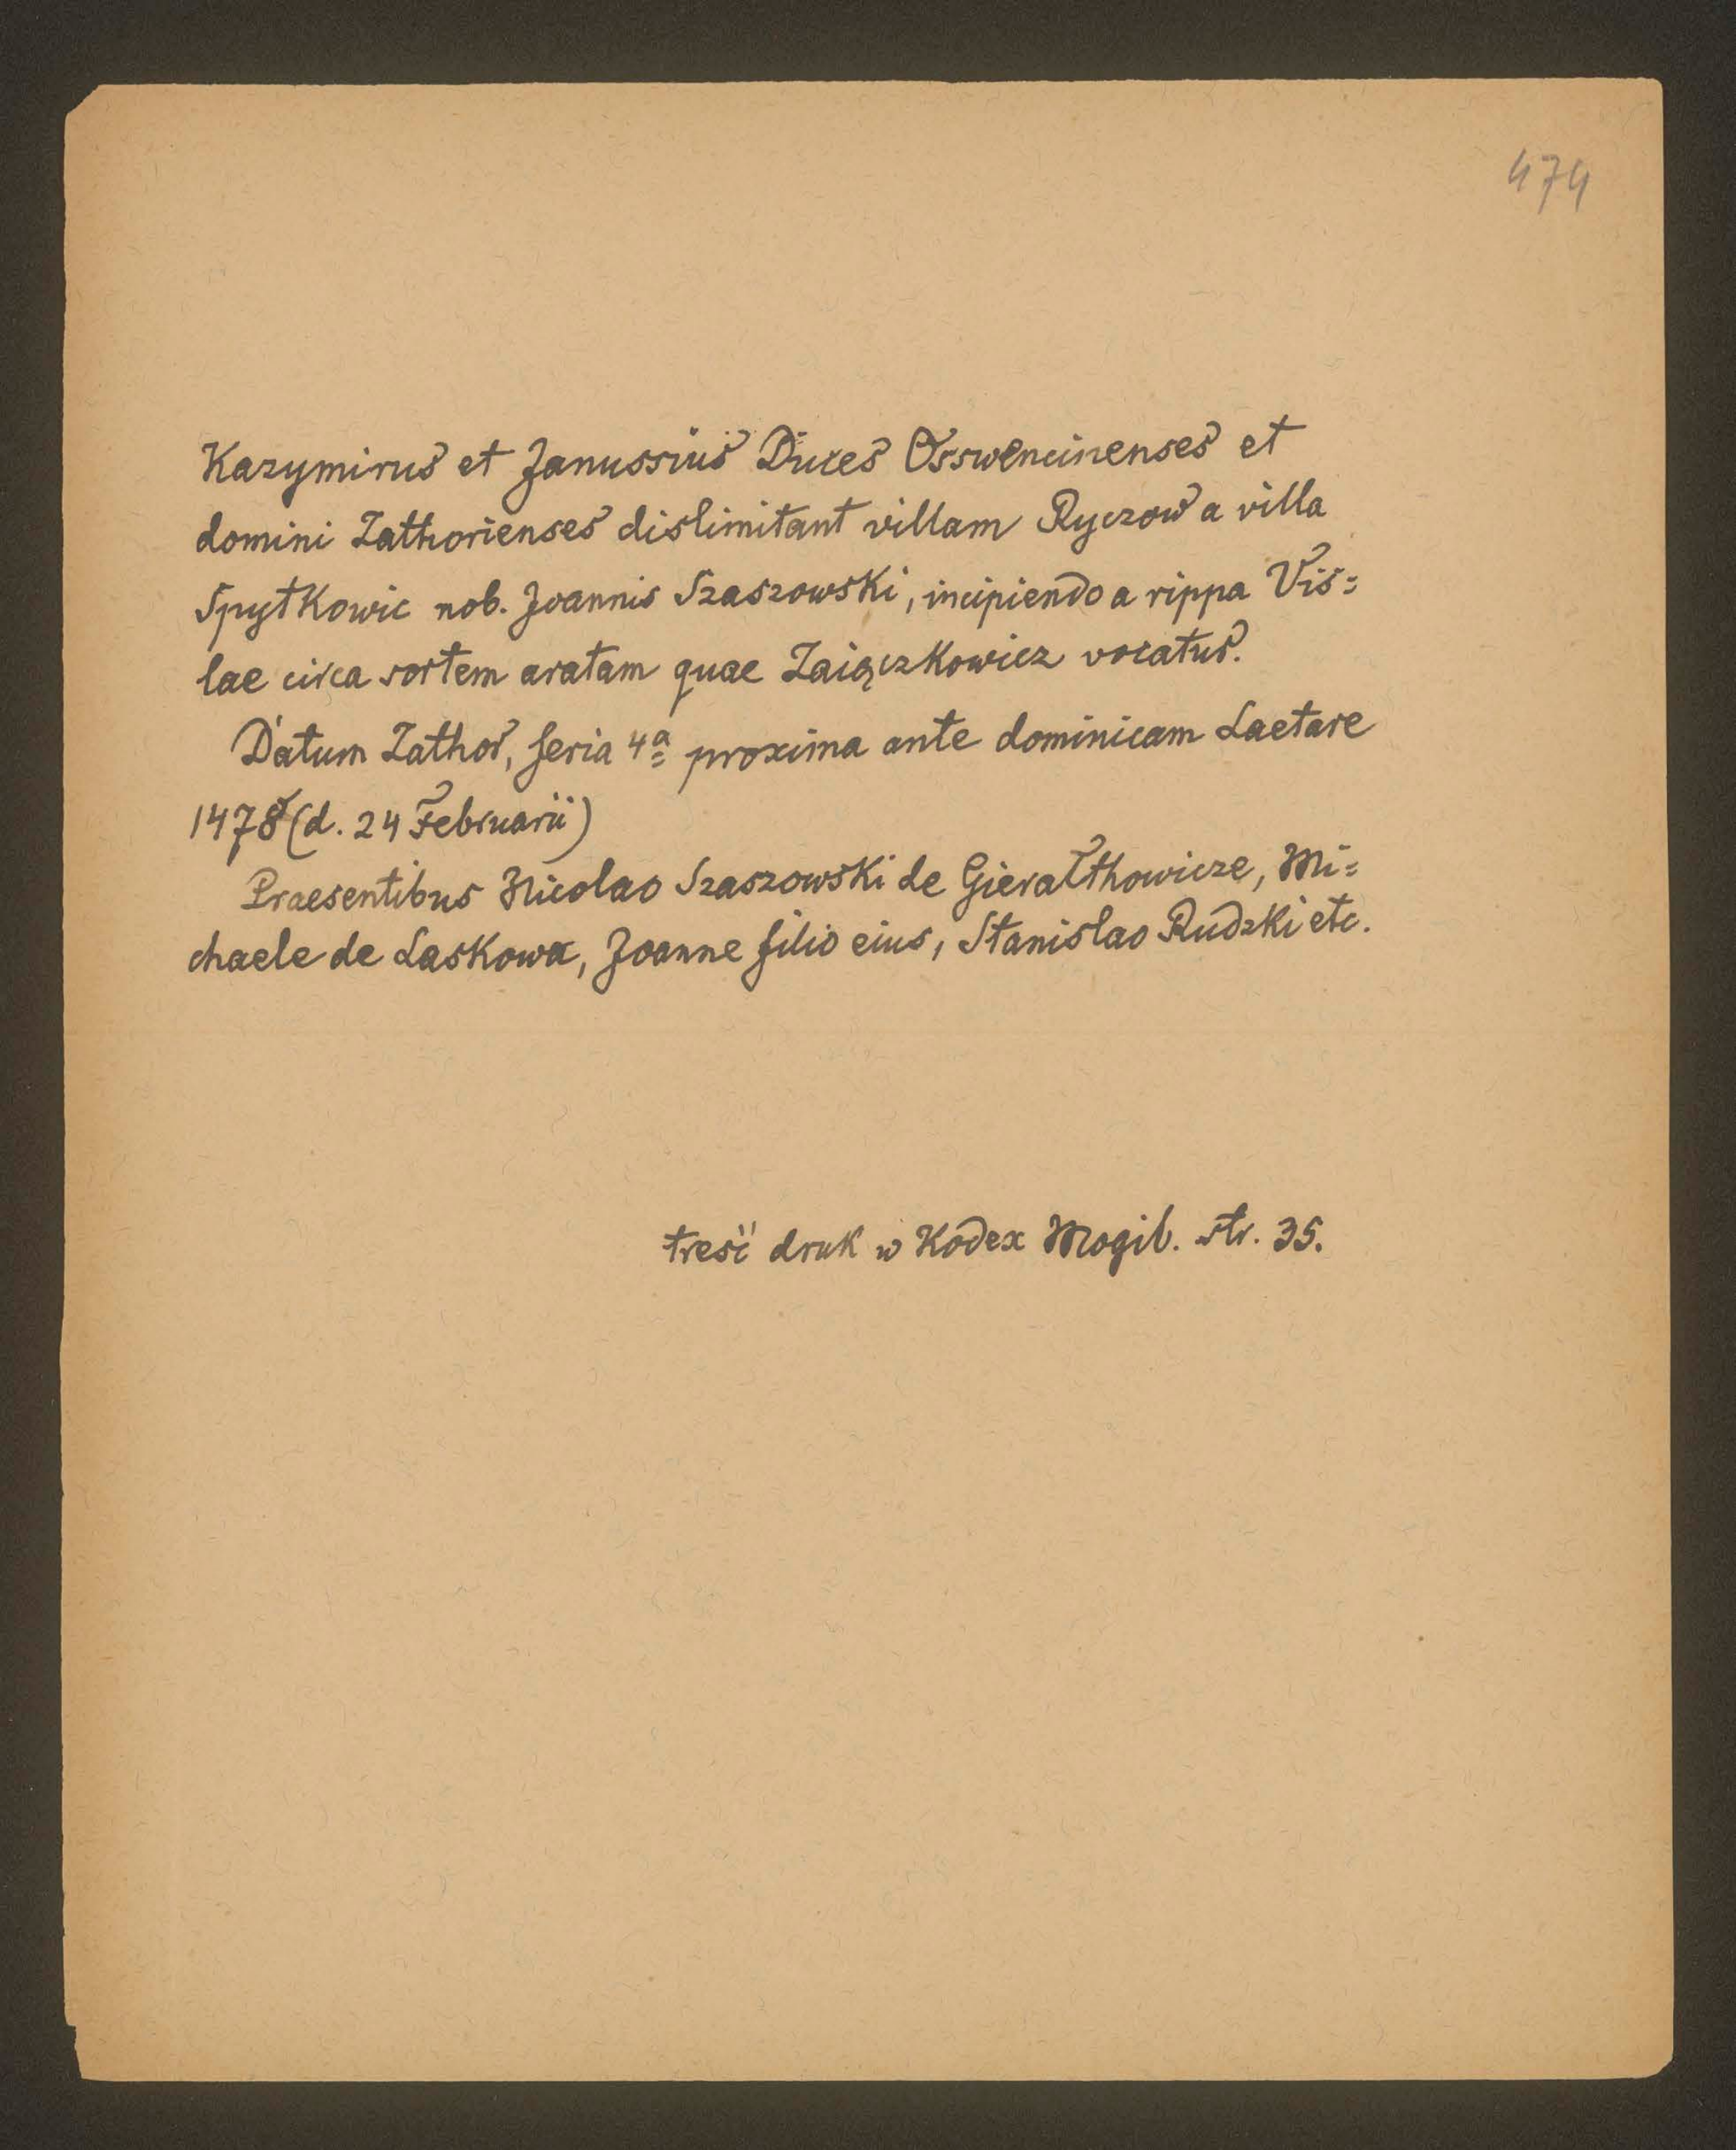 474
Kazymirus et Janussius Duces Osswencinenses et
domini Zathorienses dislimitant villam Ryczow a villa
Spytkowic nob. Joannis Szaszowski, incipiendo a rippa Vis=
lae circa sortem aratam quae Zaiączkowicz vocatus.
Datum Zathor, feria 4a proxima ante dominicam Laetare
1478 (d. 24 Februarii)
Praesentibus Nicolao Szaszowski de Gierałthowicze, Mi=
chaele de Laskowa, Joanne filio eius, Stanislao Rudzki etc.
treść druk w Kodex Mogib. str. 35.